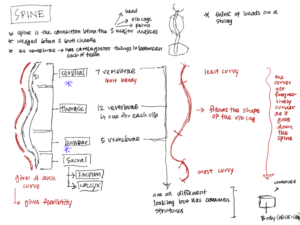 SPINE
head
rib cage
pelvis
* spine is the connection btwn the 3 major masses
* wedged btwn 2 butt cheeks
* 24 vertebrae → has cartilaginous things in between each of them
* think of beads on a string
cervical
7 vertebrae
least bendy
least curvy
thoracic
12 vertebrae
↳ one for each rib
→ follows the shape of the rib cage
lumbar
5 vertebrae
Sacral
→ sacrum
→ coccyx
most curvy
gives a such curve
↳ gives flexibility
the curves get progressively curvier as it goes down the spine
are all different looking but has common structures
common
Body